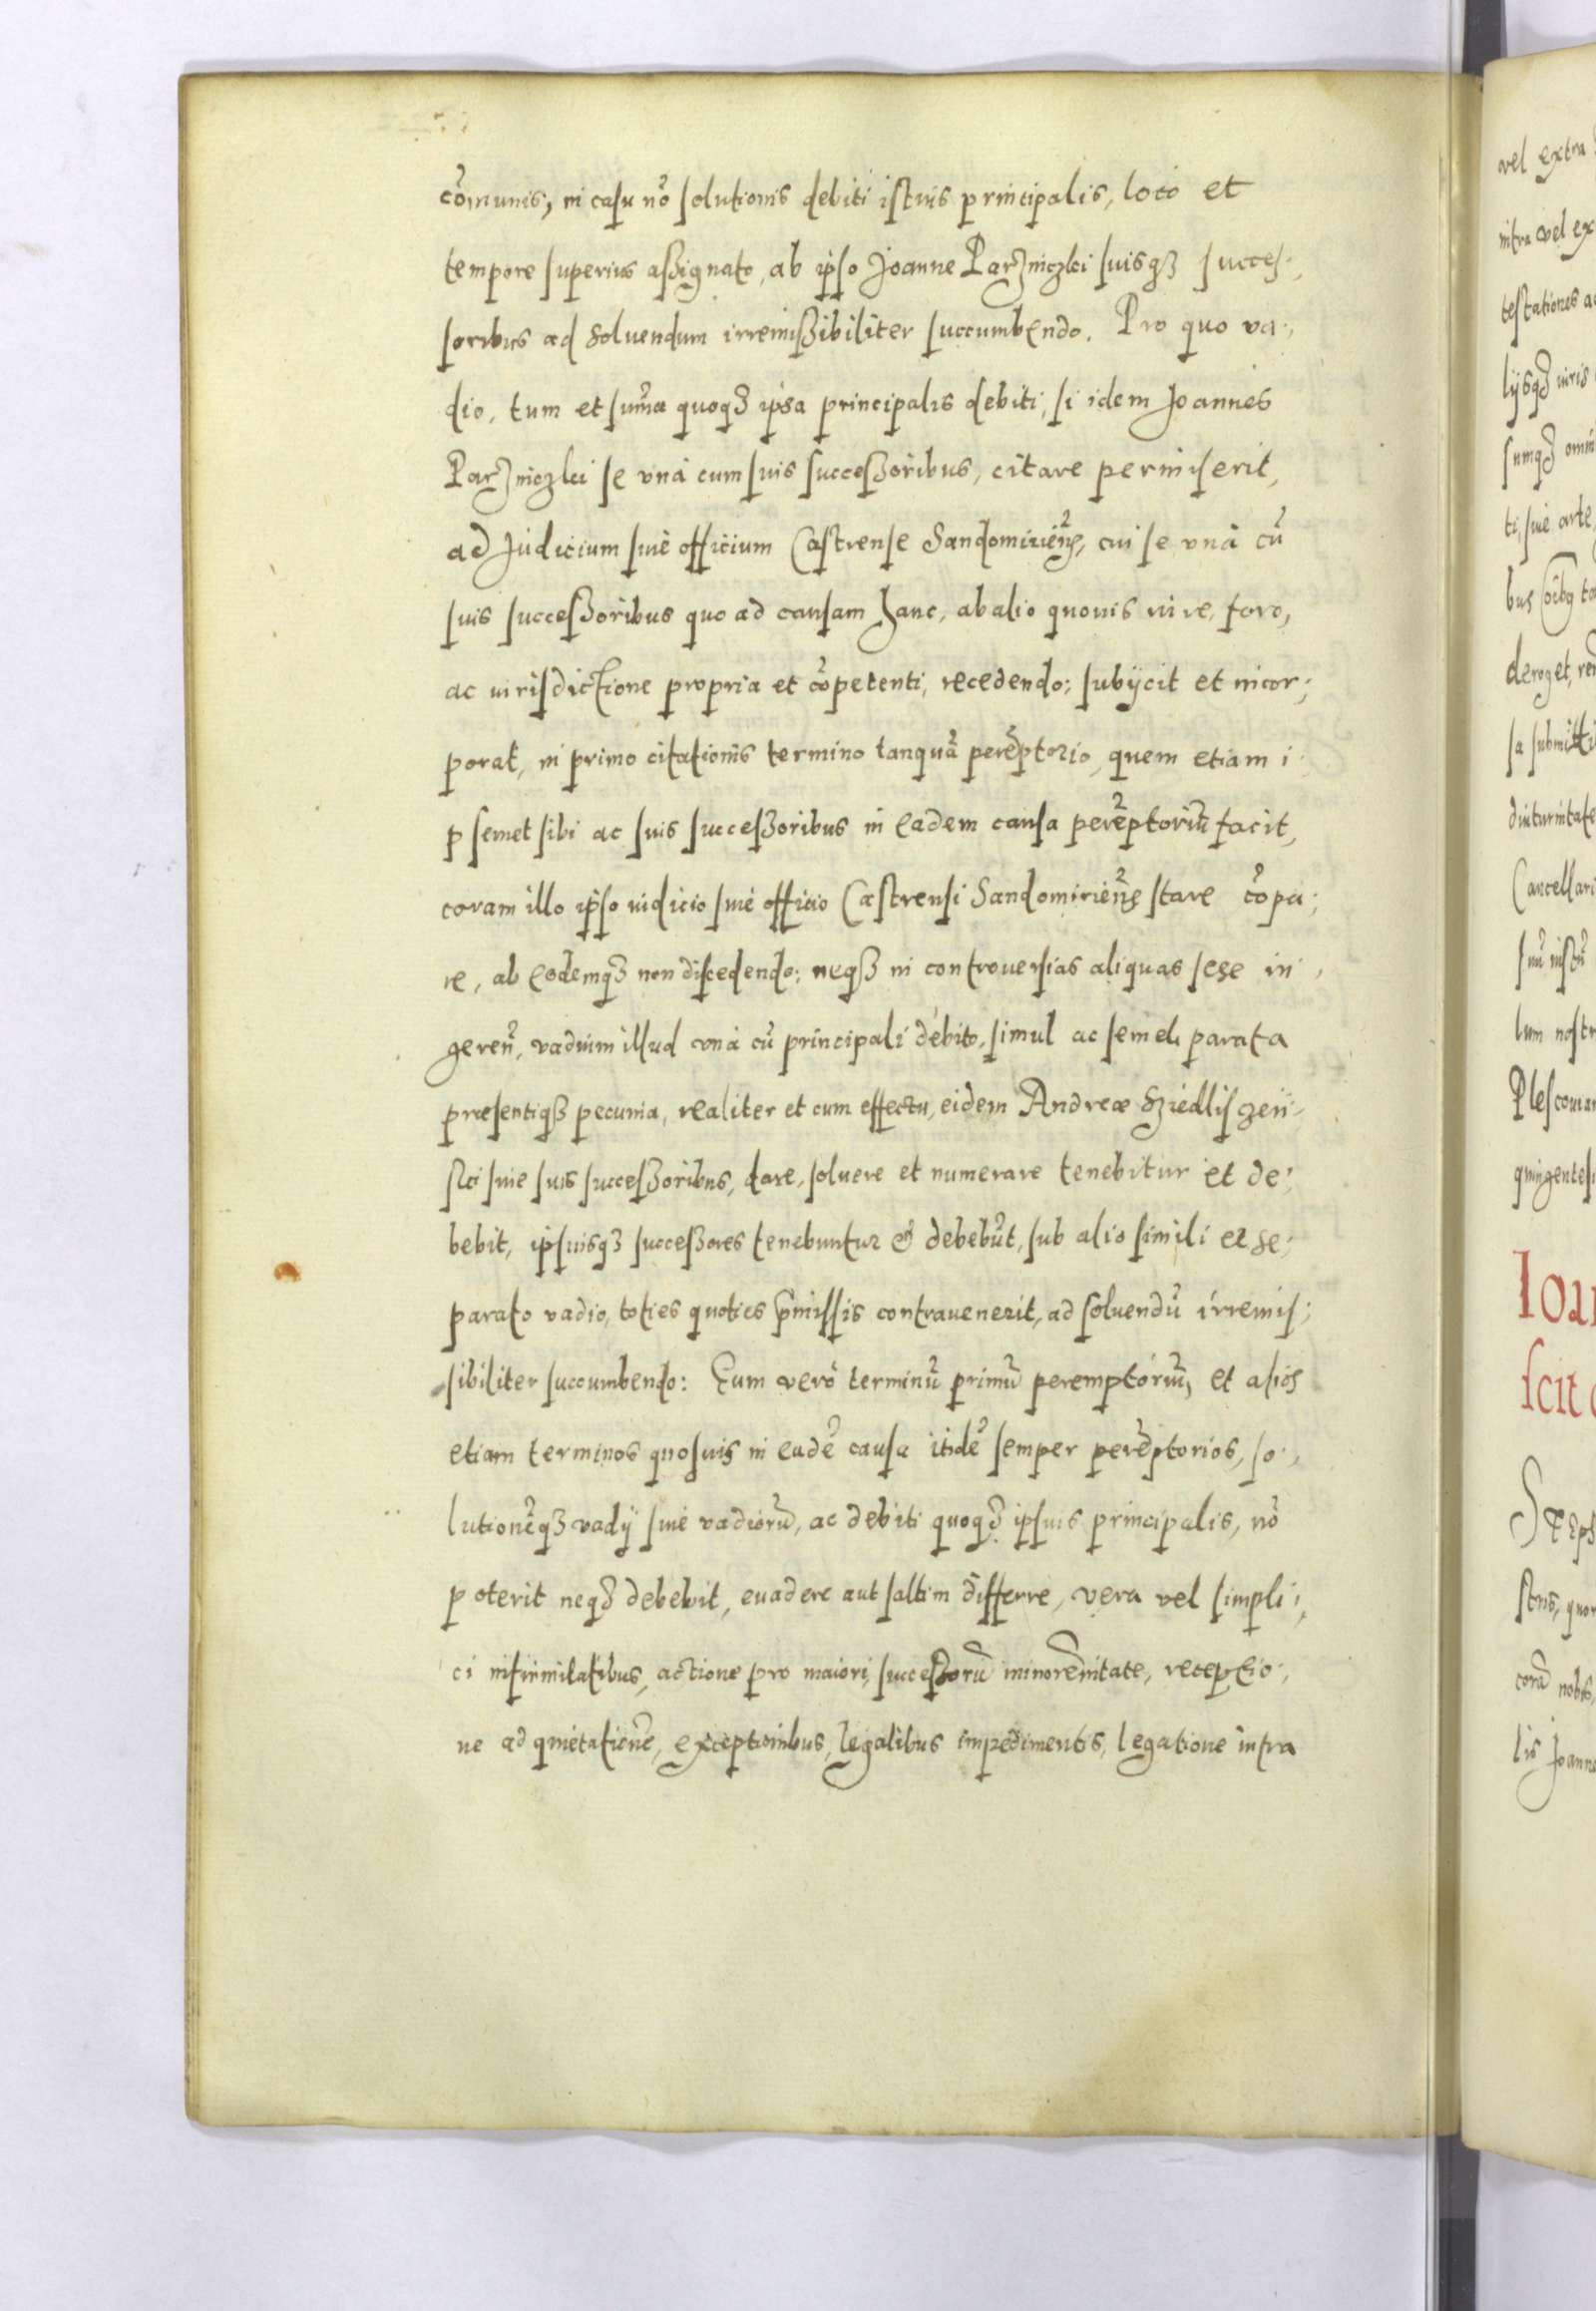 cõmunis, in casu nõ solutionis debiti istius principalis, loco et
tempore superius assignato, ab ipso Joanne Parzniczki suisqz succes:
soribus ad soluendum irremissibiliter succumbendo. Pro quo va:
dio, tum et sum̃a quoqz ipsa principalis debiti, si idem Joannes
Parzniczki se vnà cum suis successoribus, citare permiserit,
ad Judicium siuè officium Castrense Sandomirieñs, cui se vnà cũ
suis successoribus quo ad causam hanc, ab alio quouis iure, foro,
ac iurisdictione propria et cõpetenti, recedendo; subijcit et incor:
porat, in primo citationis termino tanquã perẽptorio, quem etiam i:
psemet sibi ac suis successoribus in eadem causa perẽptoriũ facit,
coram illo ipso iudicio siuè officio Castrensi Sandomirieñs stare cõpa:
re, ab eodemqz non discedendo; neqz in controuersias aliquas sese in:
gereñ, vadium illud vnà cũ principali debito, simul ac semel, parata
præsentiqz pecunia, realiter et cum effectu, eidem Andreæ Sziedlisgen:
ski siue suis successoribus, dare, soluere et numerare tenebitur et de:
bebit, ipsiusqz successores tenebuntur & debebũt, sub alio simili et se:
parato vadio, toties quoties p̃missis contrauenerit, ad soluendũ irremis:
sibiliter succumbendo: Eum verò terminũ primũ peremptoriũ, et alios
etiam terminos quosuis in eadẽ causa itidẽ semper perẽptorios, so:
lutionẽqz vadij siuè vadiorũ, ac debiti quoqz ipsius principalis, nõ
poterit neqz debebit, euadere aut saltim differre, vera vel simpli:
ci infirmitatibus, actione pro maiori, successorũ minorẽnitate, receptio:
ne ad quietationẽ, exceptionibus, legalibus impedimentis, legatione intra
vel extra
intra vel ex
testationes a
lijsqz iuris
sumqz omni
ti, siue arte,
deroget,
sa submitti
diuturnitate
Cancellari
lum nostr
Plescouia
quingentesi
Ioa
scit
Steph
stris, quo
corã nobis,
lis Joanne